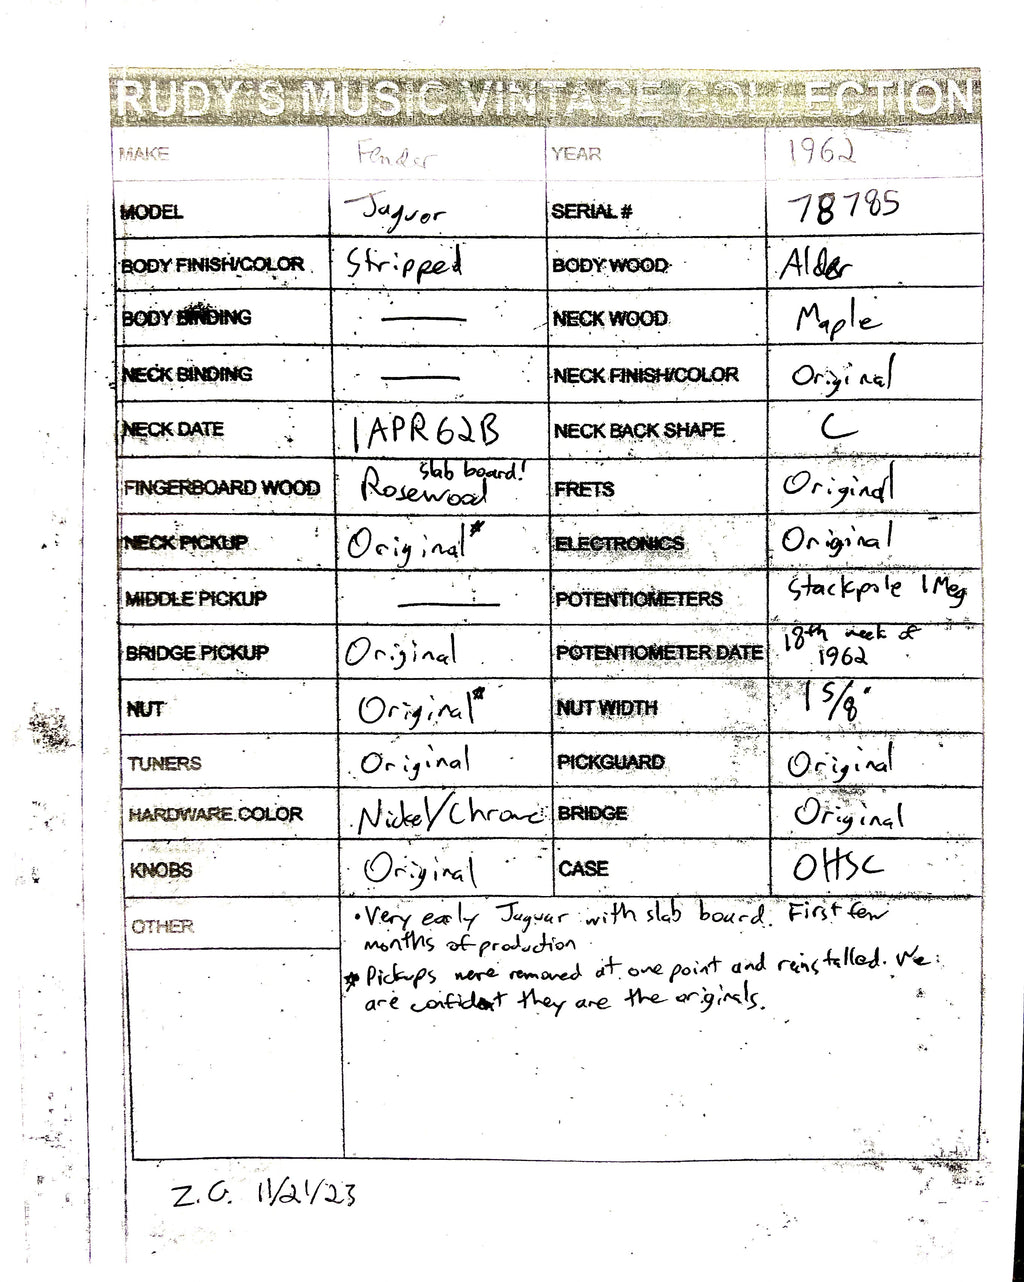 RUDY'S MUSIC VINTAGE COLLECTION
MAKE Fender YEAR 1962
MODEL Jaguar SERIAL # 78785
BODY FINISH/COLOR Stripped BODY WOOD Alder
BODY BINDING — NECK WOOD Maple
NECK BINDING — NECK FINISH/COLOR Original
NECK DATE 1APR62B NECK BACK SHAPE C
FINGERBOARD WOOD Rosewood slab board! FRETS Original
NECK PICKUP Original* ELECTRONICS Original
MIDDLE PICKUP — POTENTIOMETERS Stackpole 1Meg
BRIDGE PICKUP Original POTENTIOMETER DATE 18th week of 1962
NUT Original* NUT WIDTH 1 5/8"
TUNERS Original PICKGUARD Original
HARDWARE COLOR Nickel/Chrome BRIDGE Original
KNOBS Original CASE OHSC
OTHER • Very early Jaguar with slab board. First few
months of production
* Pickups were removed at one point and reinstalled. We
are confident they are the originals.
Z.G. 11/21/23